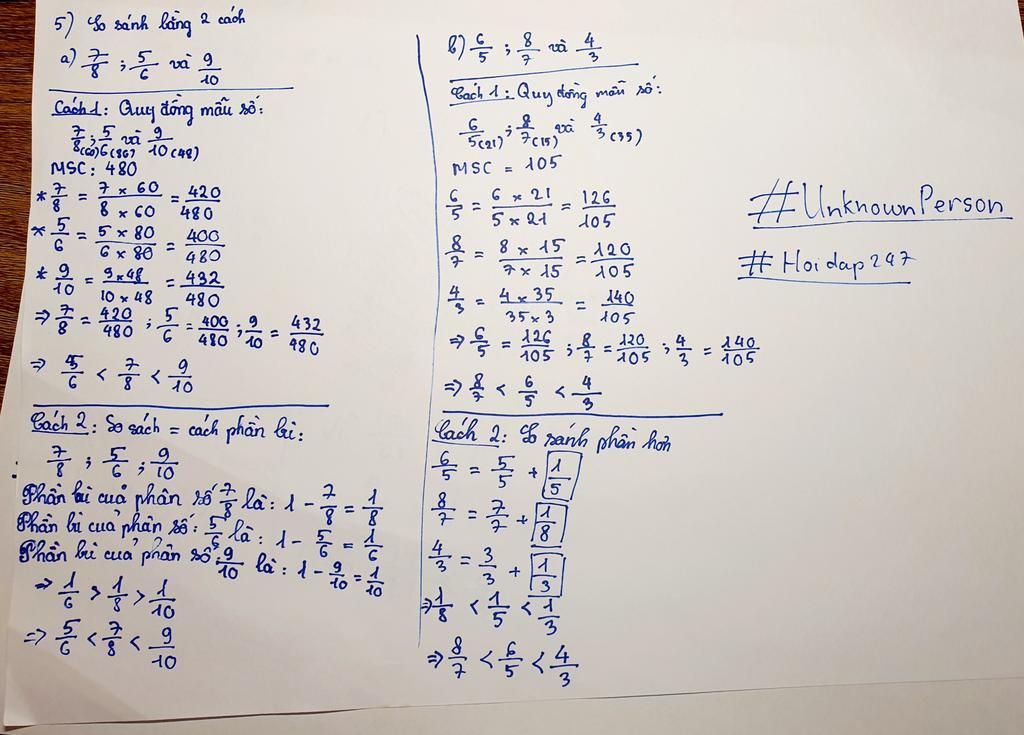 5) So sánh bằng 2 cách
a) 7/8 ; 5/6 và 9/10
Cách 1: Quy đồng mẫu số:
7/8(60) ; 5/6 và 9/10(48)
MSC: 480
* 7/8 = 7 x 60/8 x 60 = 420/480
* 5/6 = 5 x 80/6 x 80 = 400/480
* 9/10 = 9 x 48/10 x 48 = 432/480
⇒ 7/8 = 420/480 ; 5/6 = 400/480 ; 9/10 = 432/480
⇒ 5/6 < 7/8 < 9/10
Cách 2: So sách = cách phần bù:
7/8 ; 5/6 ; 9/10
Phần bù cuả phân số 7/8 là: 1 - 7/8 = 1/8
Phần bì cuả phân số: 5/6 là: 1 - 5/6 = 1/6
Phần bù cuả phân số 9/10 là: 1 - 9/10 = 1/10
⇒ 1/6 > 1/8 > 1/10
⇒ 5/6 < 7/8 < 9/10
b) 6/5 ; 8/7 và 4/3
Cách 1: Quy đồng mẫu số:
6/5(21) ; 8/7(15) và 4/3(35)
MSC = 105
6/5 = 6 x 21/5 x 21 = 126/105
8/7 = 8 x 15/7 x 15 = 120/105
4/3 = 4 x 35/35 x 3 = 140/105
⇒ 6/5 = 126/105 ; 8/7 = 120/105 ; 4/3 = 140/105
⇒ 8/7 < 6/5 < 4/3
Cách 2: So sánh phần hơn
6/5 = 5/5 + 1/5
8/7 = 7/7 + 1/8
4/3 = 3/3 + 1/3
⇒ 1/8 < 1/5 < 1/3
⇒ 8/7 < 6/5 < 4/3
#UnknownPerson
# Hoidap247